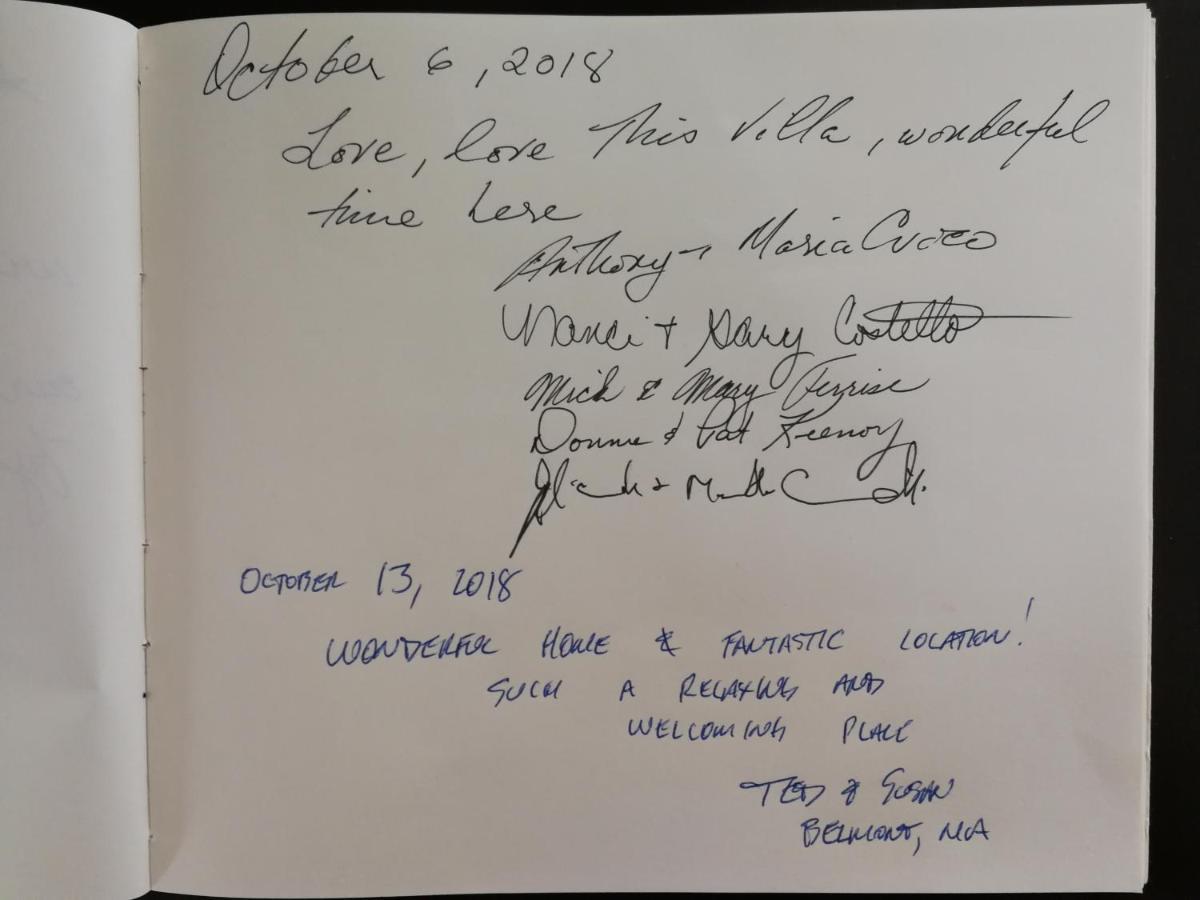 October 6, 2018
Love, love This Villa, wonderful
time here
Anthony + Maria Cuozo
Nanci + Gary Costello
Mich & Mary Ferrise
Donnie & Pat Keenoy
October 13, 2018
WONDERFUL HOME & FANTASTIC LOCATION!
SUCH A RELAXING AND
WELCOMING PLACE
TED & SUSAN
BELMONT, MA